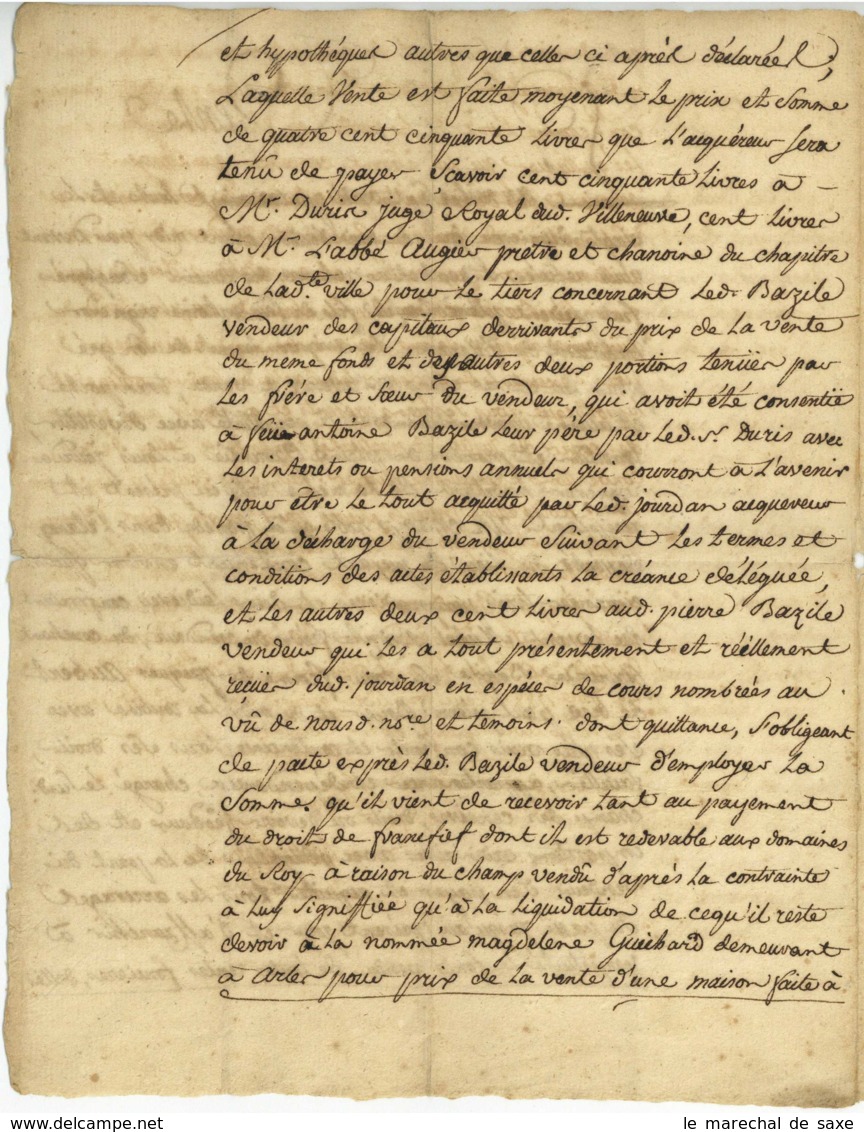 et hypothéques autres que celles ci aprés déclarées,
Laquelle Vente est faite moyenant le prix et somme
de quatre cent cinquante Livres que L'acquéreur sera
tenû de payer Scavoir cent cinquante Livres à -
Mr. Duris juge Royal dud. Villeneuve, cent Livres
à Mr. L'abbé Augier pretre et chanoine du chapitre
de Ladte. ville pour le tiers concernant Led. Bazile
vendeur des capitaux derrivants du prix de la vente
du meme fonds et des autres deux portions tenües par
Les frére et sœur du vendeur, qui avoit été consentie
à feüe antoine Bazile Leur pére par Led. Sr. Duris avec
Les interets ou pensions annuels qui courront à L'avenir
pour être le tout acquitté par Led. jourdan acquereur
à la décharge du vendeur Suivant Les termes et
conditions des actes établissants la créance déléguée,
et Les autres deux cent Livres aud. pierre Bazile
vendeur qui Les a tout présentement et réellement
reçües dud. jourdan en espéces de cours nombrées au
vû de nousd. nore. et temoins. dont quittance, s'obligeant
de pacte exprés Led. Bazile vendeur d'employer La
Somme qu'il vient de recevoir tant au payement
du droit de francfief dont il est redevable aux domaines
du Roy à raison du champ vendû d'aprés la contrainte
à Luy Signiffiée qu'à la Liquidation de cequ'il reste
devoir à la nommée magdelene Guibard demeurant
à Arles pour prix de la vente d'une maison faite à
le marechal de saxe